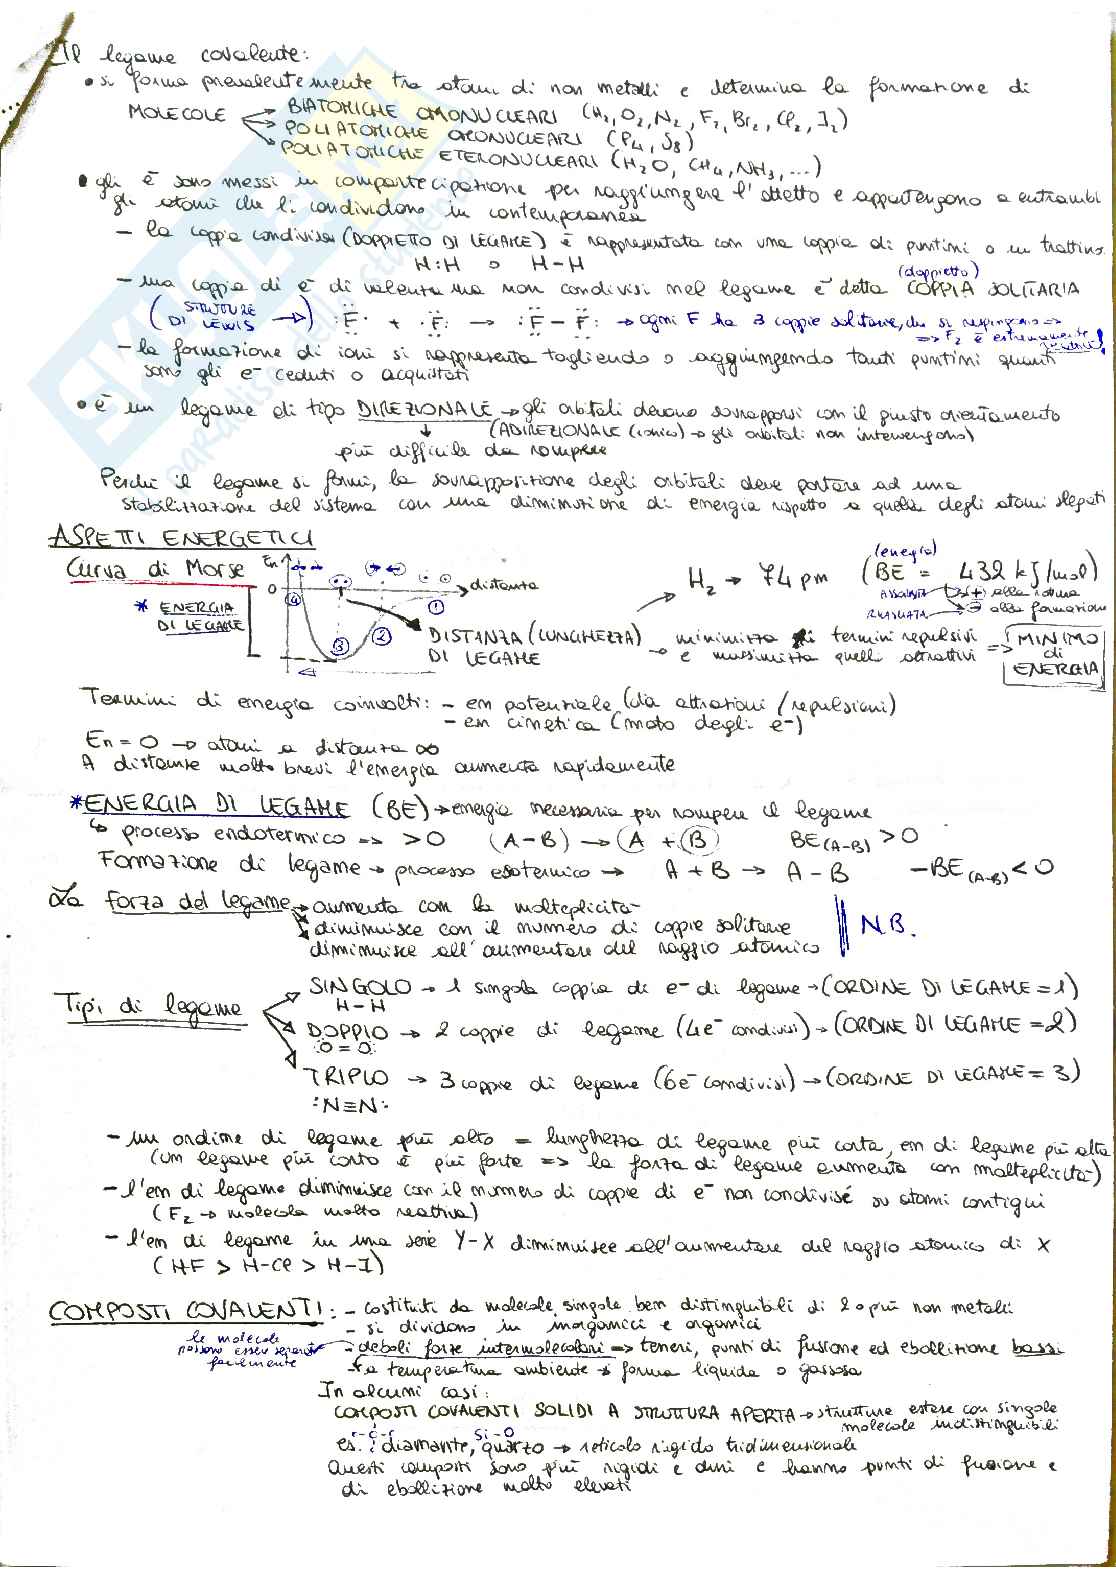 Il legame covalente:
• si forma prevalentemente tra atomi di non metalli e determina la formazione di
MOLECOLE → BIATOMICHE OMONUCLEARI (H₂, O₂, N₂, F₂, Br₂, Cl₂, I₂)
→ POLIATOMICHE OMONUCLEARI (P₄, S₈)
→ POLIATOMICHE ETERONUCLEARI (H₂O, CH₄, NH₃, ...)
• gli e⁻ sono messi in compartecipazione per raggiungere l'ottetto e appartengono a entrambi
gli atomi che li condividono in contemporanea
- la coppia condivisa (DOPPIETTO DI LEGAME) è rappresentata con una coppia di puntini o un trattino
H:H o H-H
(doppietto)
- una coppia di e⁻ di valenza ma non condivisi nel legame è detta COPPIA SOLITARIA
(STRUTTURE DI LEWIS →) :F· + ·F: → :F-F: → ogni F ha 3 coppie solitarie, che si respingono =>
=> F₂ è estremamente reattivo!
- la formazione di ioni si rappresenta togliendo o aggiungendo tanti puntini quanti
sono gli e⁻ ceduti o acquistati
• è un legame di tipo DIREZIONALE → gli orbitali devono sovrapporsi con il giusto orientamento
↓ (ADIREZIONALE (ionico) → gli orbitali non intervengono)
più difficile da rompere
Perché il legame si formi, la sovrapposizione degli orbitali deve portare ad una
stabilizzazione del sistema con una diminuzione di energia rispetto a quella degli atomi slegati
ASPETTI ENERGETICI
Curva di Morse
En
0
distanza
* ENERGIA DI LEGAME
④ ③ ② ①
DISTANZA (LUNGHEZZA) DI LEGAME
H₂ → 74 pm (BE = 432 kJ/mol)
(energia)
ASSORBITA → (+) alla rottura
RILASCIATA → ⊖ alla formazione
→ minimizza i termini repulsivi
e massimizza quelli attrattivi => MINIMO di ENERGIA
Termini di energia coinvolti: - en potenziale (da attrazioni/repulsioni)
- en cinetica (moto degli e⁻)
En = 0 → atomi a distanza ∞
A distanze molto brevi l'energia aumenta rapidamente
*ENERGIA DI LEGAME (BE) → energia necessaria per rompere il legame
↳ processo endotermico => >0 (A-B) → (A + (B) BE(A-B) > 0
Formazione di legame → processo esotermico → A + B → A-B -BE(A-B) < 0
La forza del legame → aumenta con la molteplicità
→ diminuisce con il numero di coppie solitarie
→ diminuisce all'aumentare del raggio atomico
N.B.
Tipi di legame
SINGOLO → 1 singola coppia di e⁻ di legame → (ORDINE DI LEGAME = 1)
H-H
DOPPIO → 2 coppie di legame (4e⁻ condivisi) → (ORDINE DI LEGAME = 2)
:O=O:
TRIPLO → 3 coppie di legame (6e⁻ condivisi) → (ORDINE DI LEGAME = 3)
:N≡N:
- un ordine di legame più alto = lunghezza di legame più corta, en di legame più alta
(un legame più corto è più forte => la forza di legame aumenta con molteplicità)
- l'en di legame diminuisce con il numero di coppie di e⁻ non condivise su atomi contigui
(F₂ → molecola molto reattiva)
- l'en di legame in una serie Y-X diminuisce all'aumentare del raggio atomico di X
(HF > H-Cl > H-I)
COMPOSTI COVALENTI: - costituiti da molecole singole ben distinguibili di 2 o più non metalli
- si dividono in inorganici e organici
le molecole possono essere separate facilmente
- deboli forze intermolecolari => teneri, punti di fusione ed ebollizione bassi
- a temperatura ambiente → forma liquida o gassosa
In alcuni casi:
COMPOSTI COVALENTI SOLIDI A STRUTTURA APERTA → strutture estese con singole
molecole indistinguibili
-C-C-
Si-O
es. diamante, quarzo → reticolo rigido tridimensionale
Questi composti sono più rigidi e duri e hanno punti di fusione e
di ebollizione molto elevati